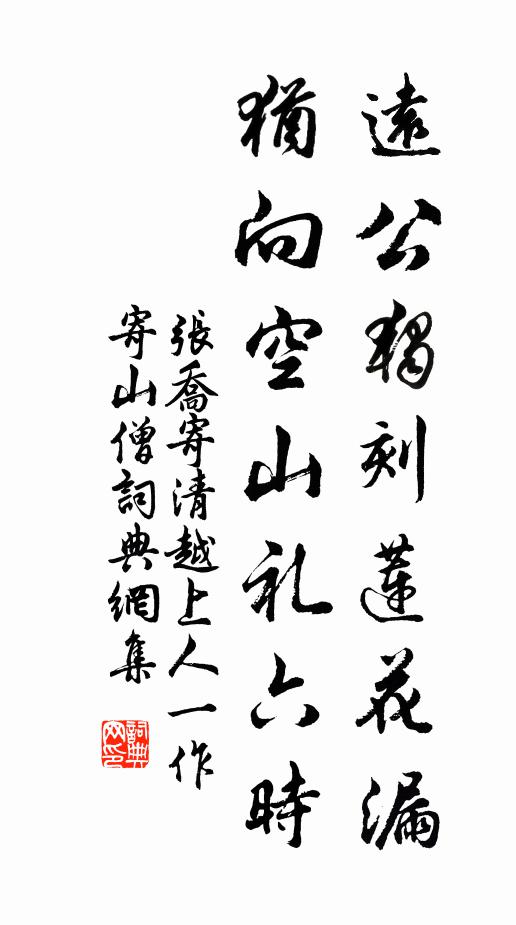 遠公獨刻蓮花漏
猶向空山礼六時
張喬寄清越上人一作
寄山僧詞典網集
詞典网印